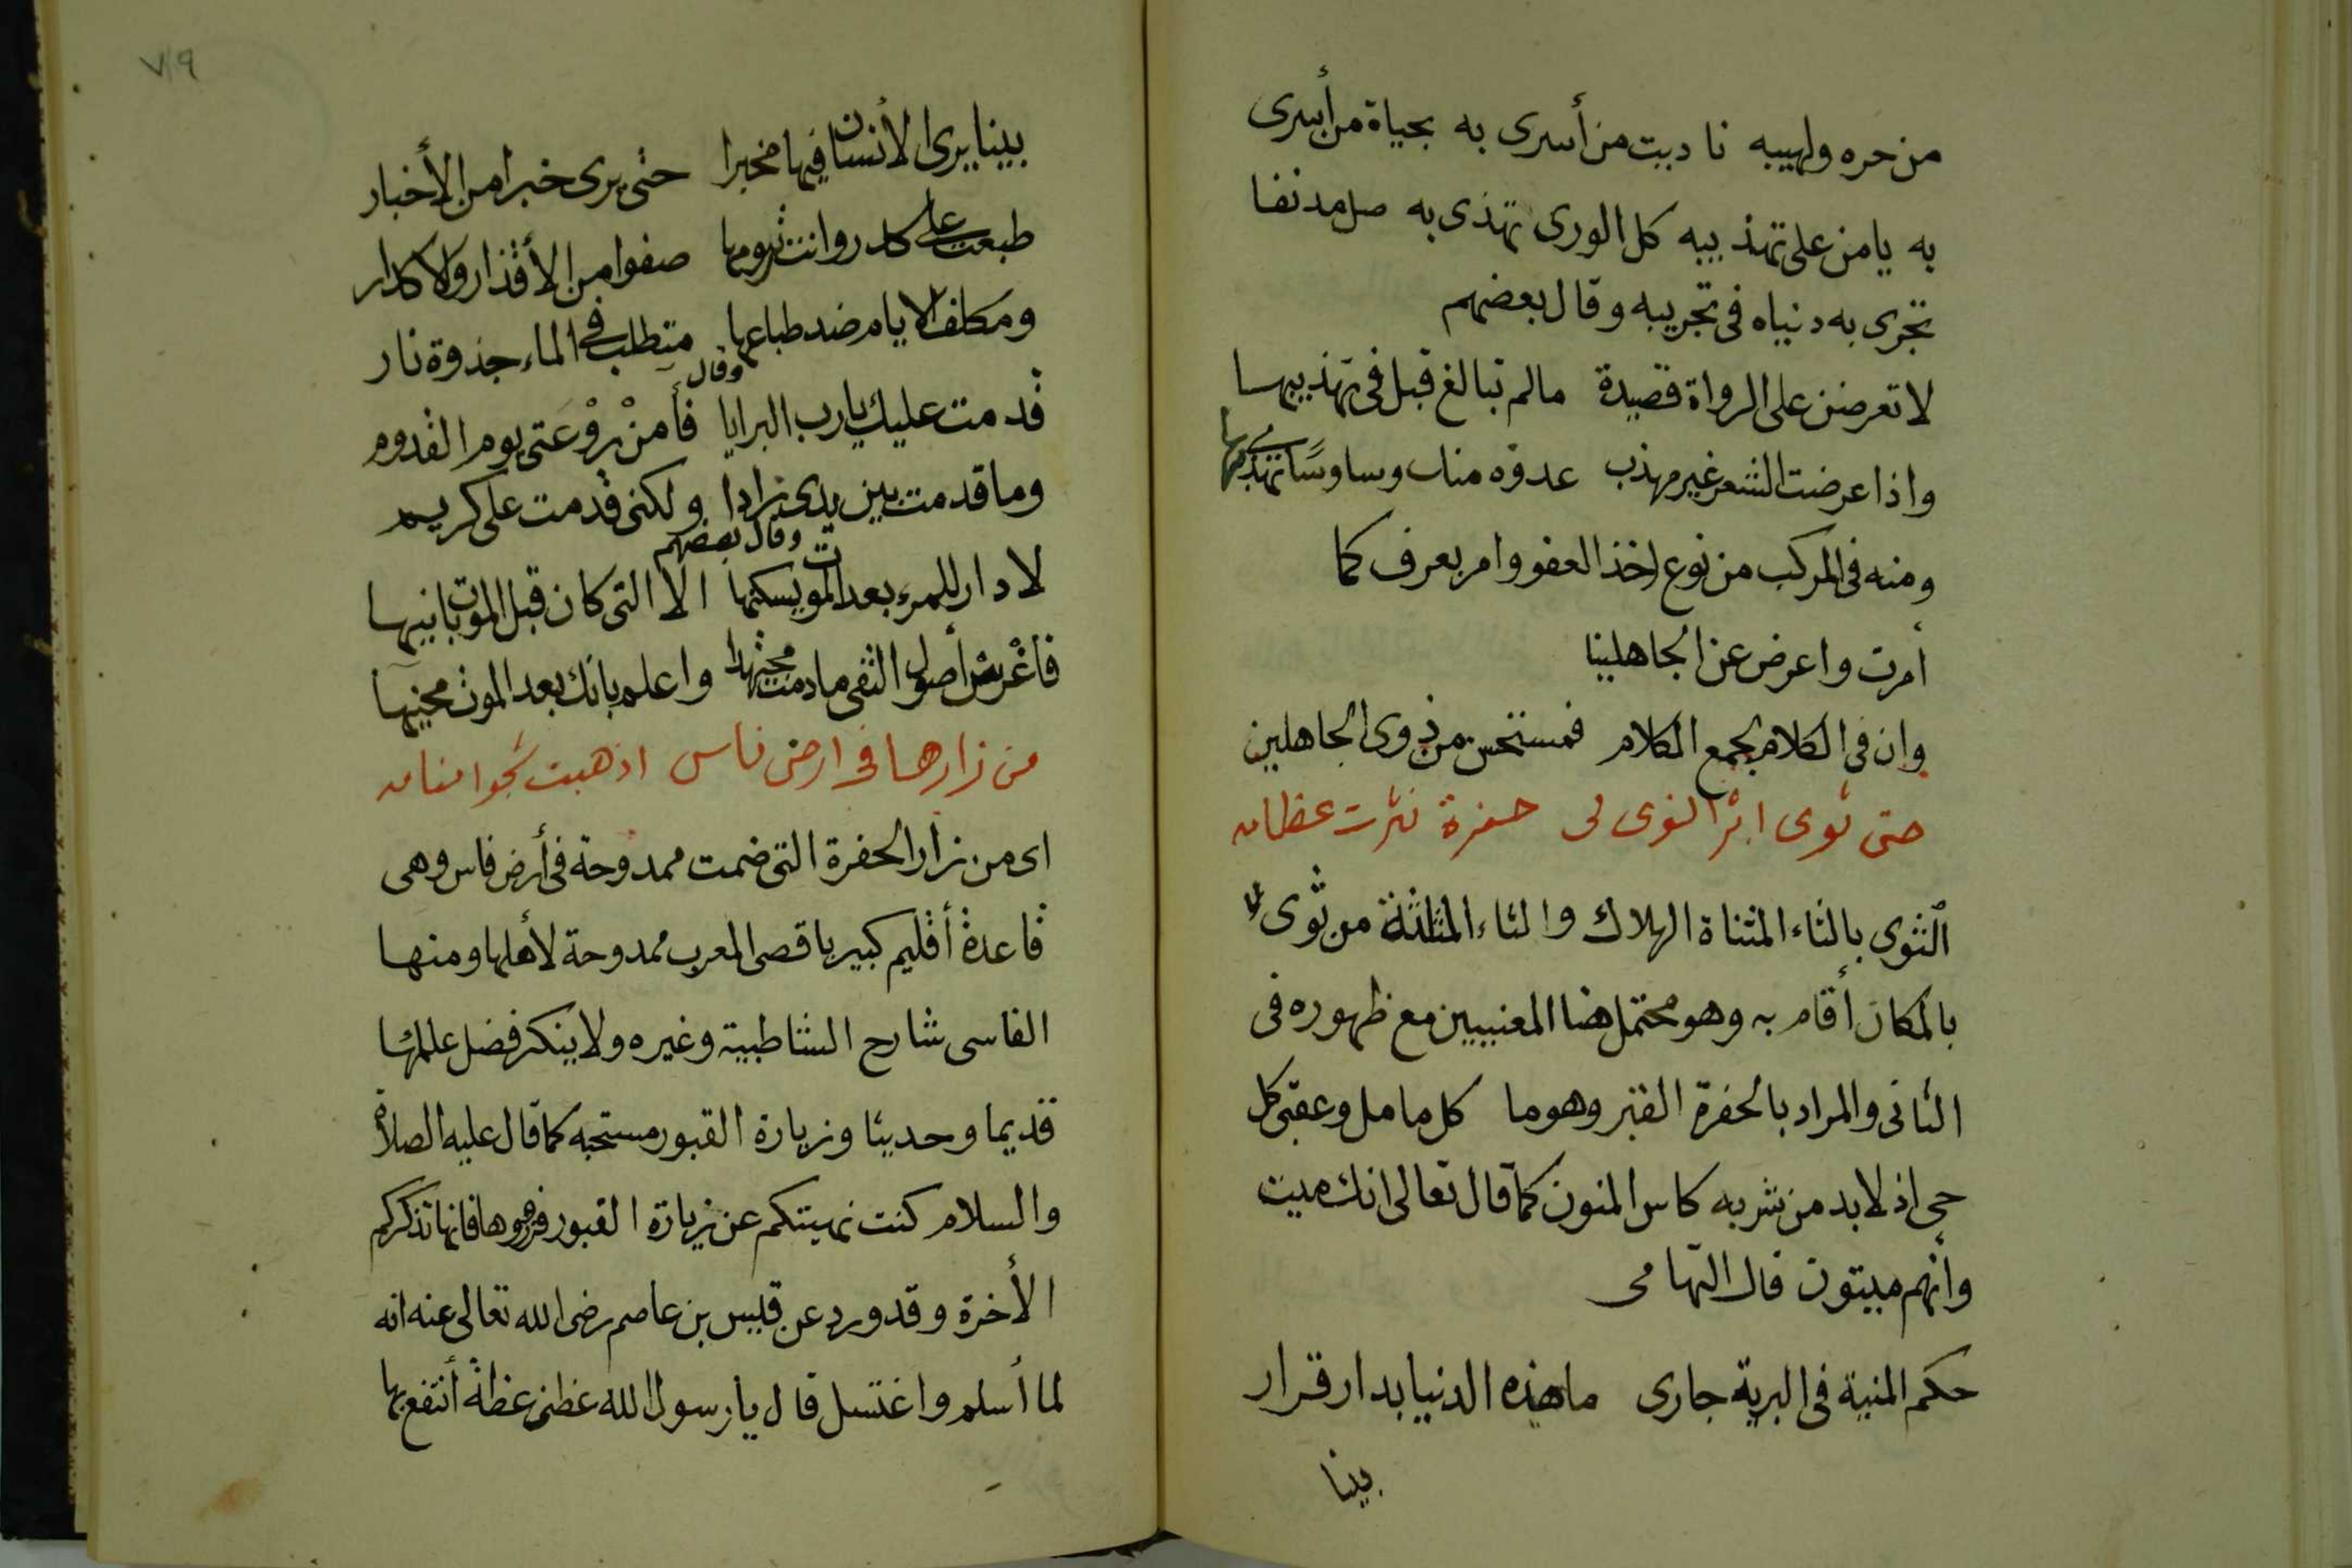 من حره ولهيبه ناديت من أسرى به بحياة من أسرى
به يا من على تهذيبه كل الورى تهذى به صل مدنفا
تجرى به دنياه فى تجريبه وقال بعضهم
لا تعرضن على الرواة قصيدة مالم تبالغ قبل فى تهذيبها
واذا عرضت الشعر غير مهذب عدوه منك وساوسًا تهذى بها
ومنه فى المركب من نوع اخذ العفو وامر بعرف كما
أمرت واعرض عن الجاهلينا
وان فى الكلام لجمع الكلام فمستحسن من ذوى الجاهلين
حتى ثوى اثر النوى لى حفرة نثرت عظامه
التوى بالتاء المثناة الهلاك والثاء المثلثة من ثوى
بالمكان أقام به وهو محتمل هنا المعنيين مع ظهوره فى
الثانى والمراد بالحفرة القبر وهو ما كل مامل وعقبى كل
حى اذ لابد من شربه كاس المنون كما قال تعالى انك ميت
وأنهم ميتون قال التهامى
حكم المنية فى البرية جارى ما هذه الدنيا بدار قرار
بينا
٧٩
بينا يرى الأنسان فيها مخبرا حتى يرى خبرا من الأخبار
طبعت على كدر وانت ترومها صفوا من الأقذار والاكدار
ومكلف الايام ضد طباعها متطلب فى الماء جذوة نار
وقال
قدمت عليك يا رب البرايا فأمنْ رَوْعَتى يوم القدوم
وما قدمت بين يدى زادا ولكنى قدمت على كريم
وقال بعضهم
لا دار للمرء بعد الموت يسكنها الا التى كان قبل الموت بانيها
فأغرس أصول التقى مادمت مجتهدا واعلم بانك بعد الموت مجنيها
من زارها فى ارض فاس اذهبت نجوا منامه
اى من زار الحفرة التى ضمت ممدوحة فى أرض فاس وهى
قاعدة أقليم كبير باقصى المغرب ممدوحة لأهلها ومنها
الفاسى شارح الشاطبية وغيره ولا ينكر فضل علمائها
قديما وحديثا وزيارة القبور مستحبه كما قال عليه الصلاة
والسلام كنت نهيتكم عن زيارة القبور فزوروها فانها تذكركم
الأخرة وقد ورد عن قيس بن عاصم رضى الله تعالى عنه انه
لما أسلم واغتسل قال يا رسول الله عظنى عظة أنتفع بها